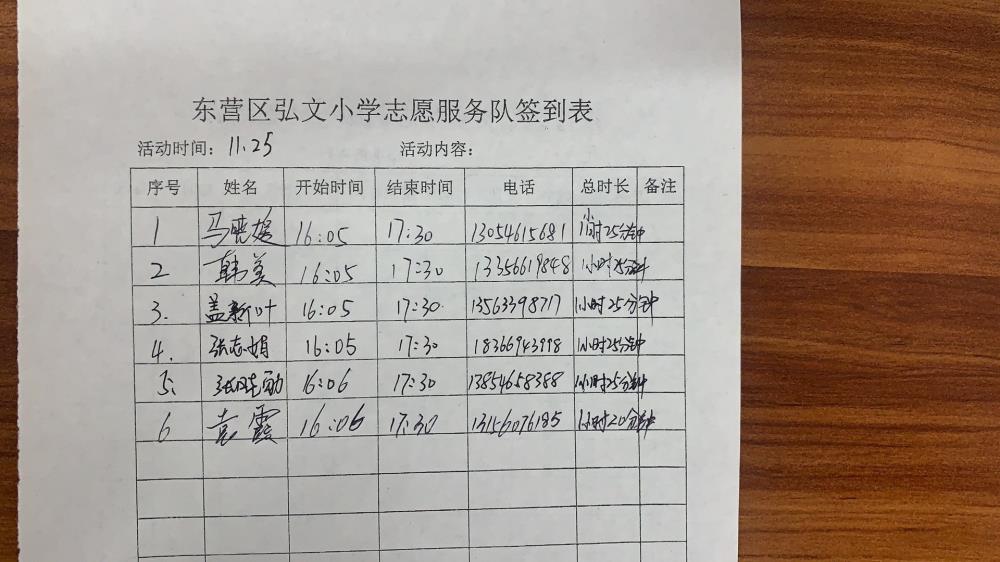 东营区弘文小学志愿服务队签到表
活动时间：11.25 活动内容：
序号 姓名 开始时间 结束时间 电话 总时长 备注
1 马晓媛 16:05 17:30 13054615681 1小时25分钟
2 韩美 16:05 17:30 13356619848 1小时25分钟
3. 盖新叶 16:05 17:30 13563398717 1小时25分钟
4. 张志娟 16:05 17:30 18366943998 1小时25分钟
5. 16:06 17:30 13854658388 1小时25分钟
6 袁霞 16:06 17:30 13156076185 1小时20分钟